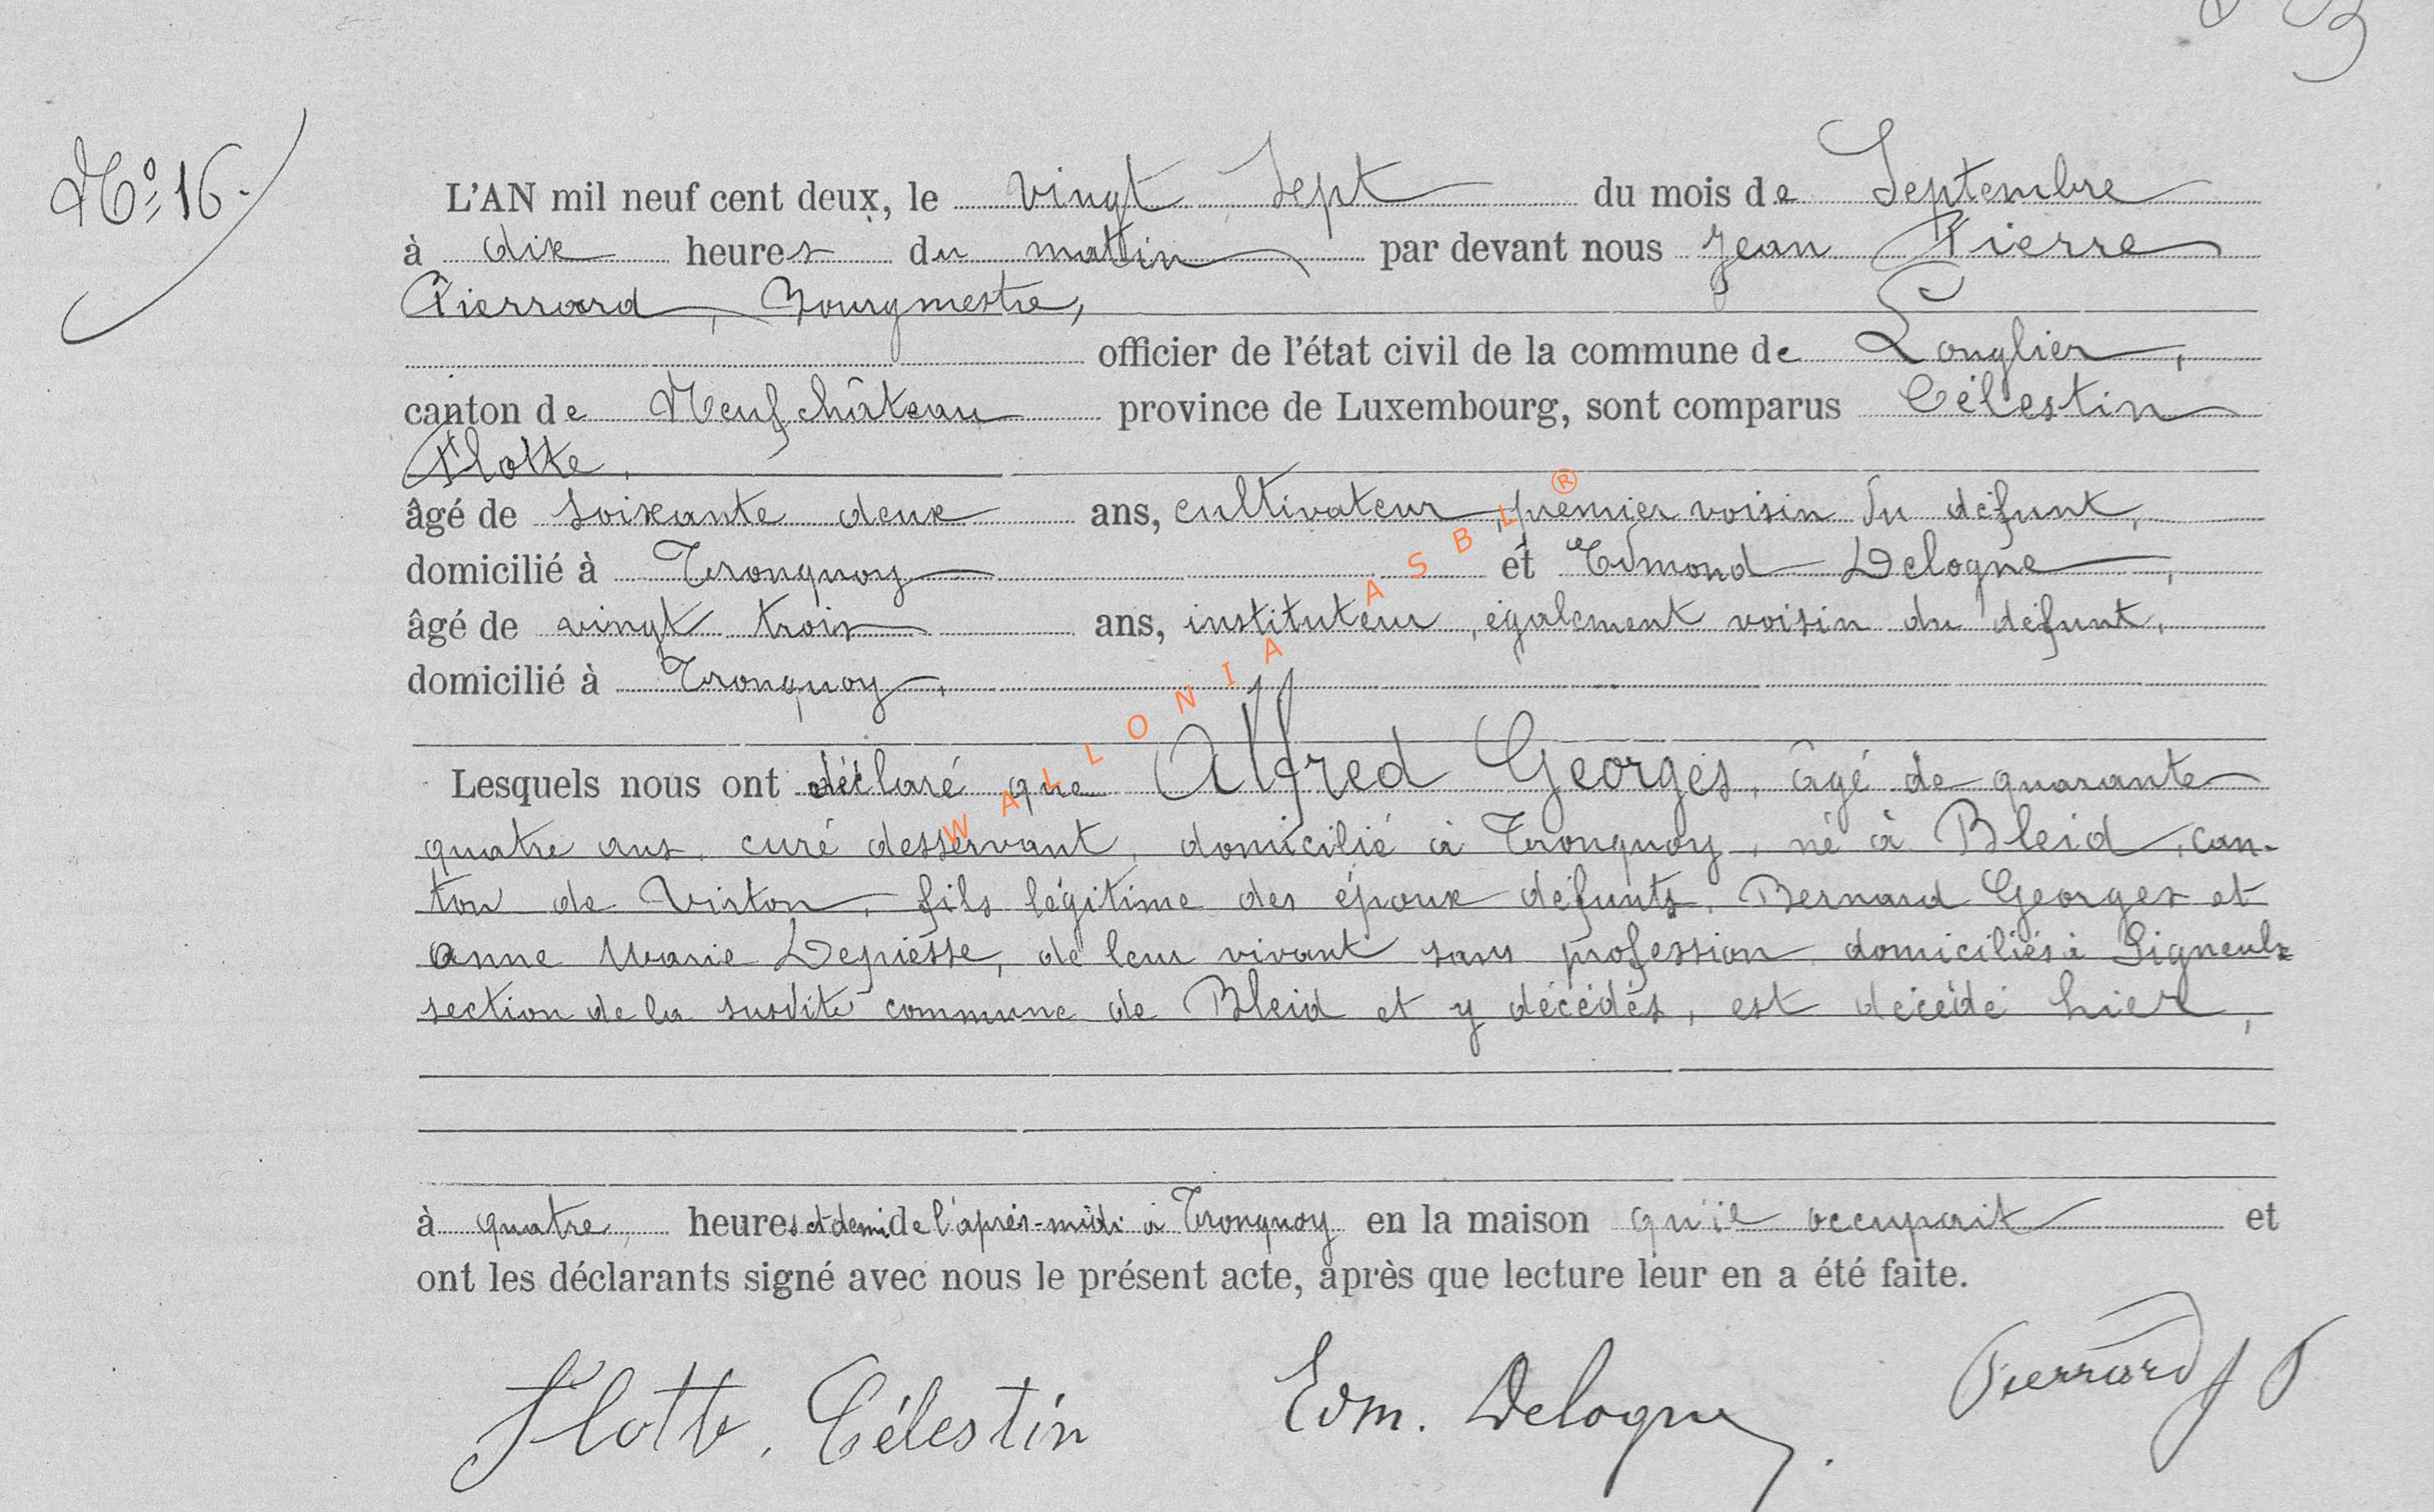 Nº 16.
L'AN mil neuf cent deux, le vingt sept du mois de Septembre
à dix heures du matin par devant nous Jean Pierre
Pierrard, Bourgmestre,
officier de l'état civil de la commune de Longlier,
canton de Neufchâteau province de Luxembourg, sont comparus Célestin
Flotte,
âgé de soixante deux ans, cultivateur, premier voisin du défunt,
domicilié à Tronquoy et Edmond Delogne,
âgé de vingt trois ans, instituteur, également voisin du défunt,
domicilié à Tronquoy,
Lesquels nous ont déclaré que Alfred Georges, âgé de quarante
quatre ans, curé desservant, domicilié à Tronquoy, né à Bleid, can-
ton de Virton, fils légitime des époux défunts, Bernard Georges et
Anne Marie Depiesse, de leur vivant sans profession domiciliés à Signeulx
section de la susdite commune de Bleid et y décédés, est décédé hier,
à quatre heures et demi de l'après-midi à Tronquoy en la maison qu'il occupait et
ont les déclarants signé avec nous le présent acte, après que lecture leur en a été faite.
Flotte, Célestin Edm. Delogne. Pierrard J P
WALLONIA ASBL ®